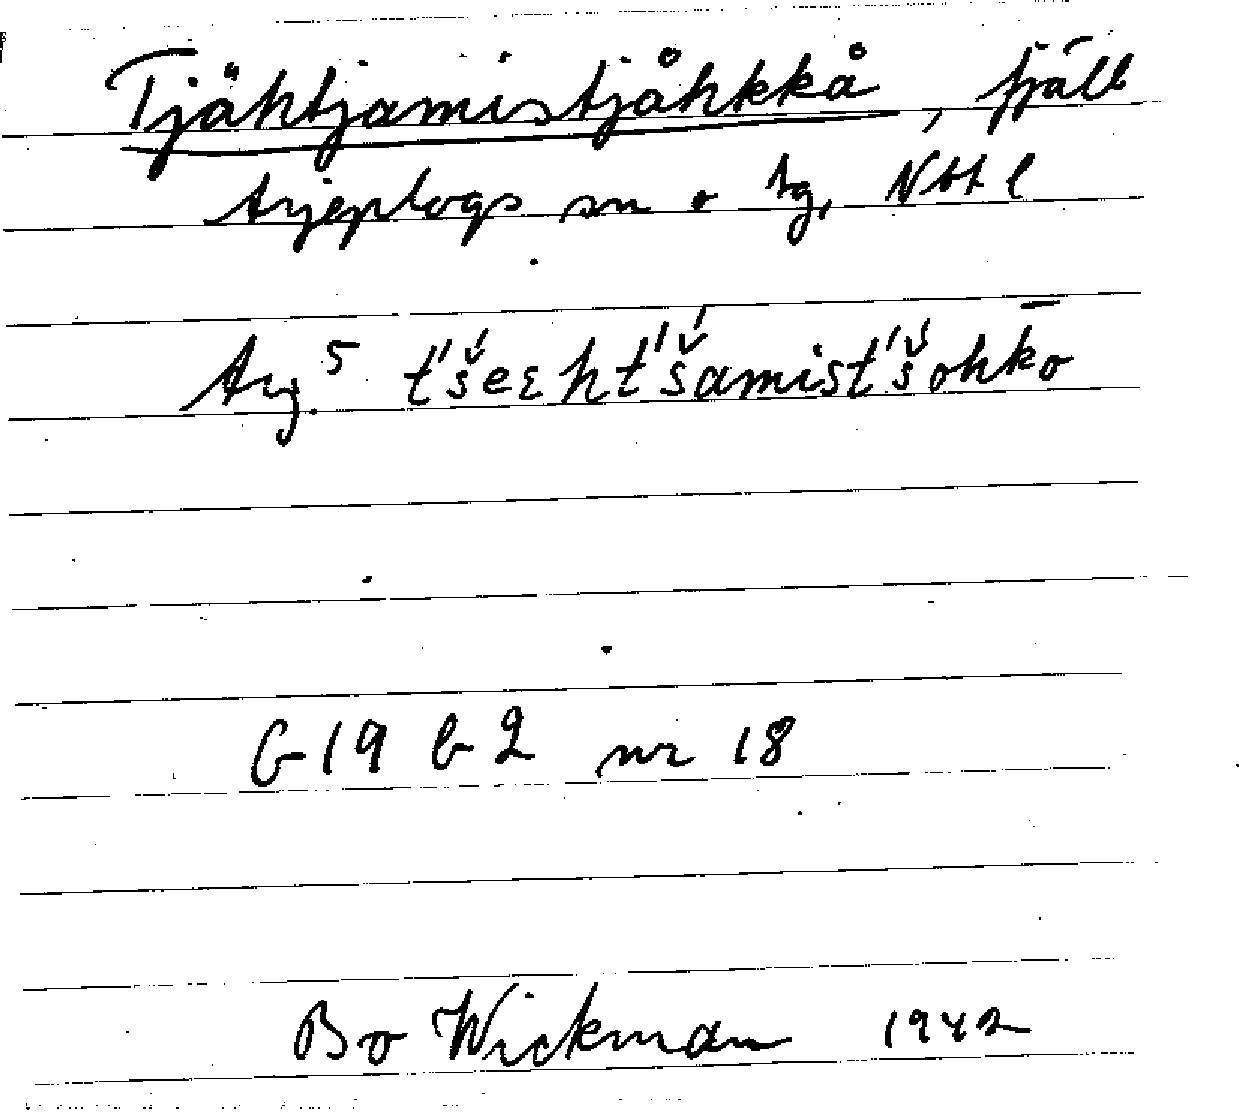 Tjähtjamistjåhkkå, fjäll
Arjeplogs sn o tg, Nbt l
Arj. 5 t'š́eεht'š́amist'š́ohk̄o
G 19 b 2 nr 18
Bo Wickman 1942